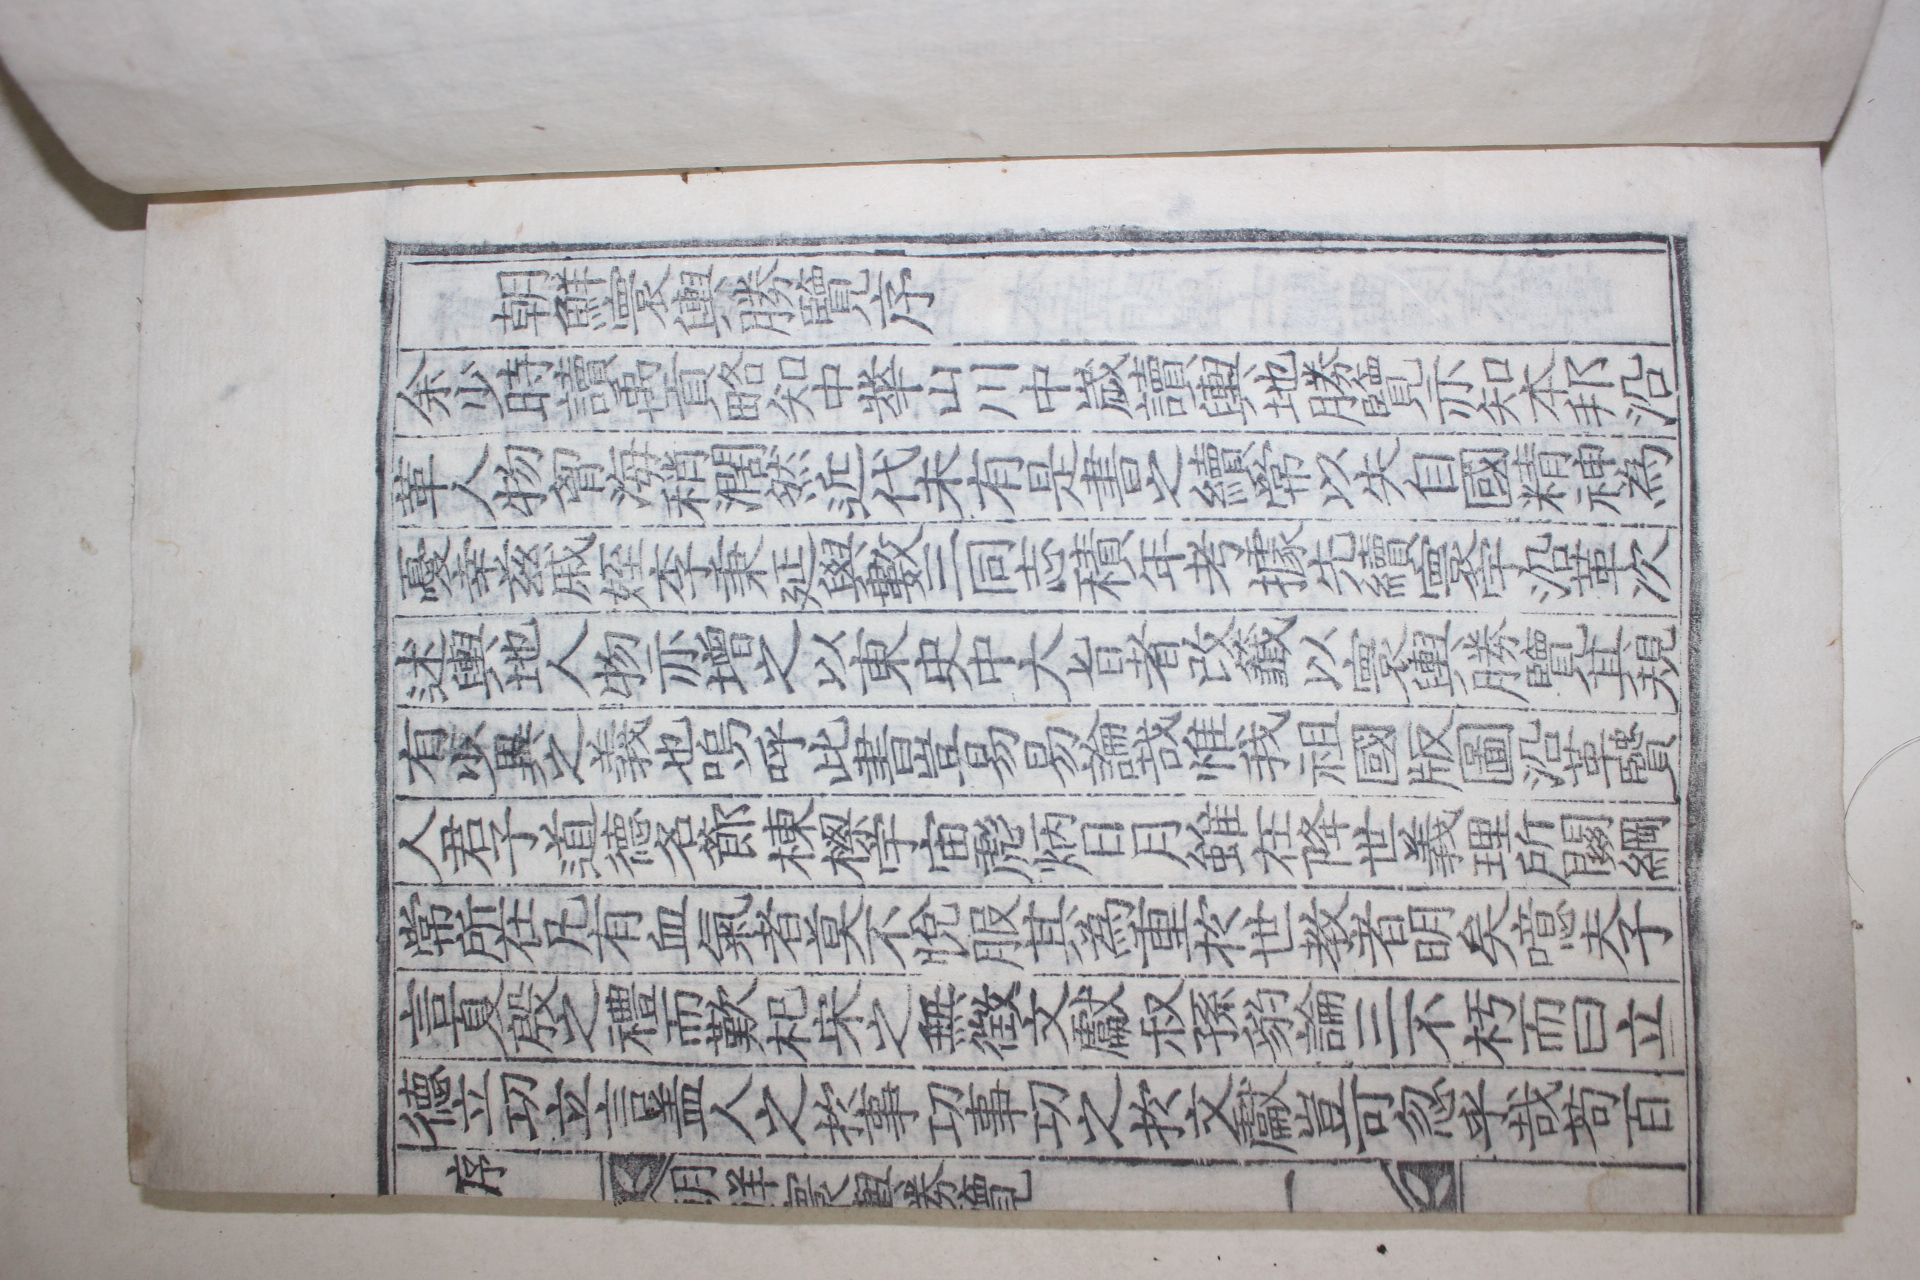 朝鮮寰輿勝覽序
余少時讀禹貢略知中華山川中歲讀輿地勝覽亦知本邦沿
革人物皆海稍濶然近代未有是書之續常以失自國精神爲
憂幸茲咸姪李秉延與數三同志積年考據先續寰宇沿革次
述輿地人物亦增之以東史中大旨者改籤以寰輿勝覽其規
有少異之義也嗚呼此書豈易易論哉惟我祖國版圖沿革贒
人君子道德名節棟樑宇宙彪炳日月雖在降世義理所關綱
常所在凡有血氣者莫不悅服其爲重於世敎者明矣噫夫子
言夏殷之禮而歎杞宋之無徵文獻叔孫豹論三不朽而曰立
德立功立言盖人之於事功事功之於文獻豈可忽乎哉苟百
序 朝鮮寰輿勝覽 一